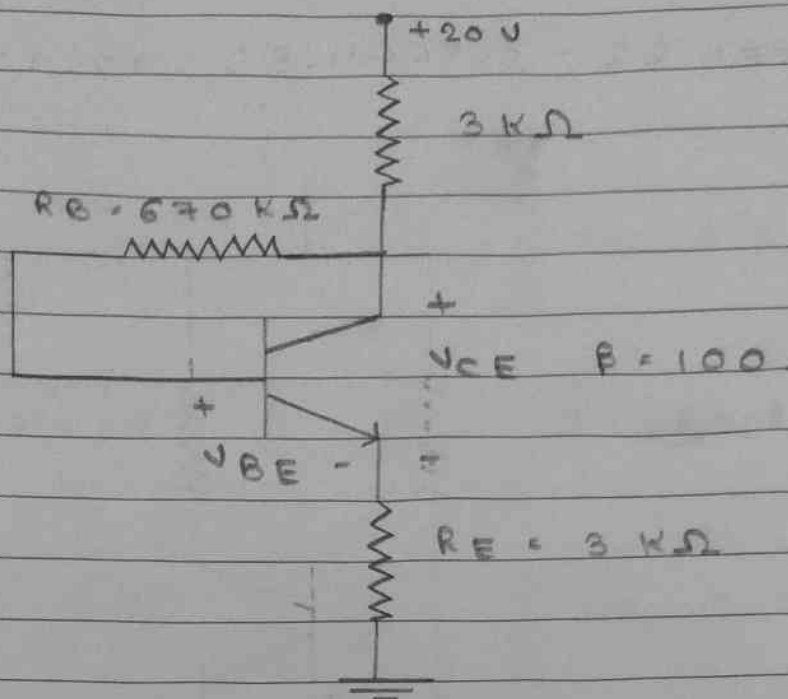 +20 V
3 KΩ
RB = 670 KΩ
+
VCE β = 100
+
VBE -
-
RE = 3 KΩ